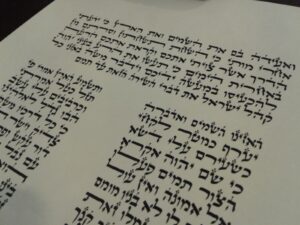 ואעידה בם את השמים ואת הארץ כי ידעתי
אחרי מותי כי השחת תשחתון וסרתם מן
הדרך אשר צויתי אתכם וקראת אתכם הרעה
באחרית הימים כי תעשו את הרע בעיני יהוה
להכעיסו במעשה ידיכם וידבר משה באזני כל
קהל ישראל את דברי השירה הזאת עד תמם
האזינו השמים ואדברה
ותשמע הארץ אמרי פי
יערף כמטר לקחי
תזל כטל אמרתי
כשעירם עלי דשא
וכרביבים עלי
כי שם יהוה אקרא
הבו גדל
הצור תמים פעלו
כי כל
אל אמונה ואין עול
צדיק
לו לא בניו מומם
דור
תגמלו זאת
עם
קנך